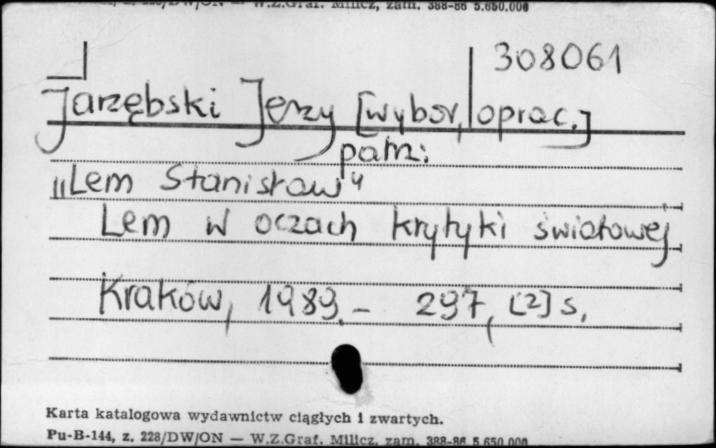 Pu-B-144, z. 228/DW/ON — W.Z.Graf. Milicz, zam. 388-86 5.650.000
308061
Jarzębski Jerzy [wybor, oprac.]
patrz:
„Lem Stanisław"
Lem w oczach krytyki światowej
Kraków, 1989. - 297, [2] s.
Karta katalogowa wydawnictw ciągłych i zwartych.
Pu-B-144, z. 228/DW/ON — W.Z.Graf. Milicz, zam. 388-86 5.650.000